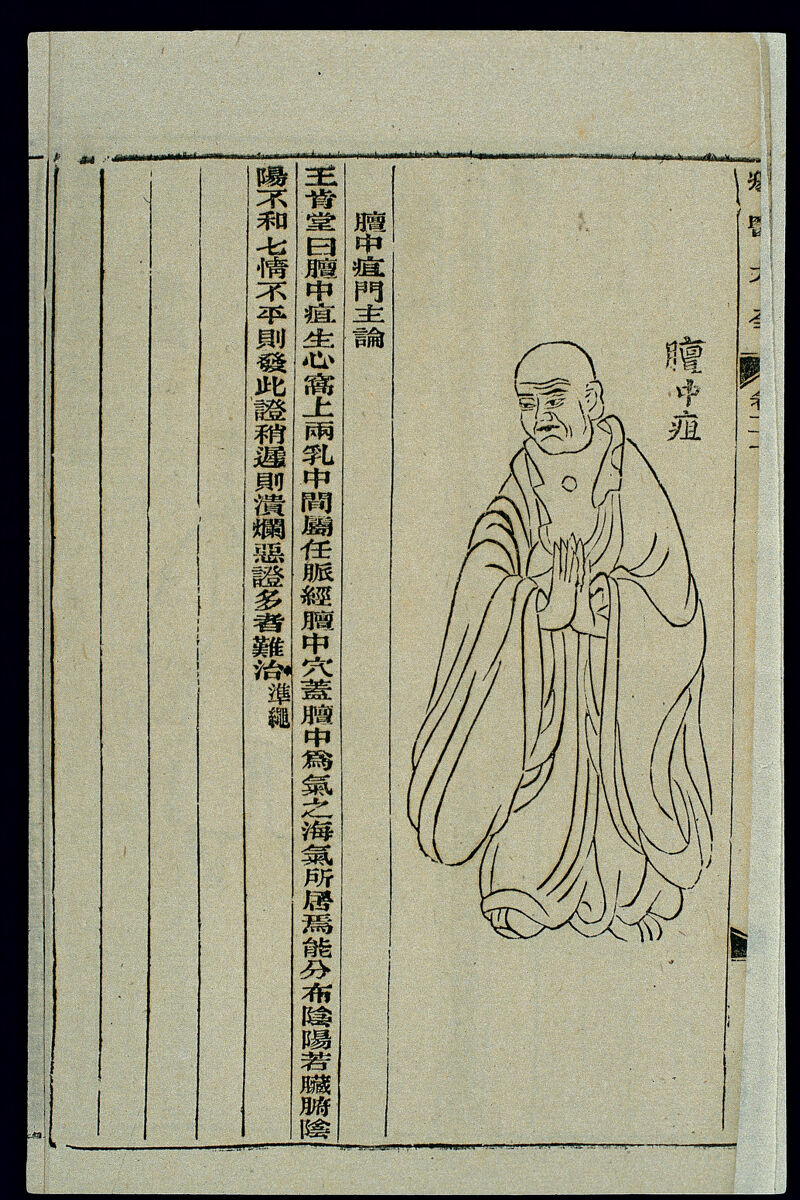 瘍醫大全
膻中疽
膻中疽門主論
王肯堂曰膻中疽生心窩上兩乳中間屬任脈經膻中穴蓋膻中爲氣之海氣所居焉能分布陰陽若臟腑陰
陽不和七情不平則發此證稍遲則潰爛惡證多者難治
準繩